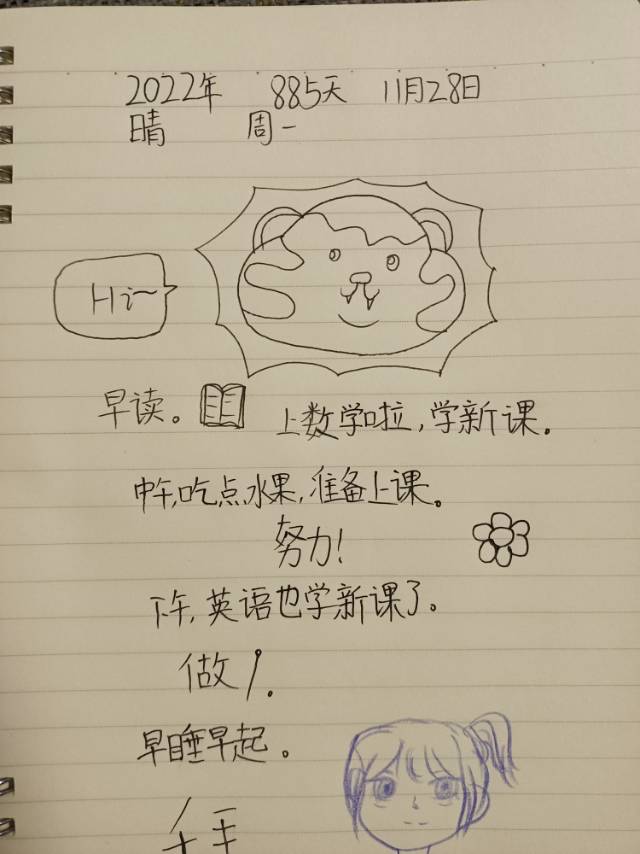 2022年 885天 11月28日
晴 周一
Hi~
早读。 上数学啦,学新课。
中午,吃点水果,准备上课。
努力!
下午,英语也学新课了。
做
早睡早起。